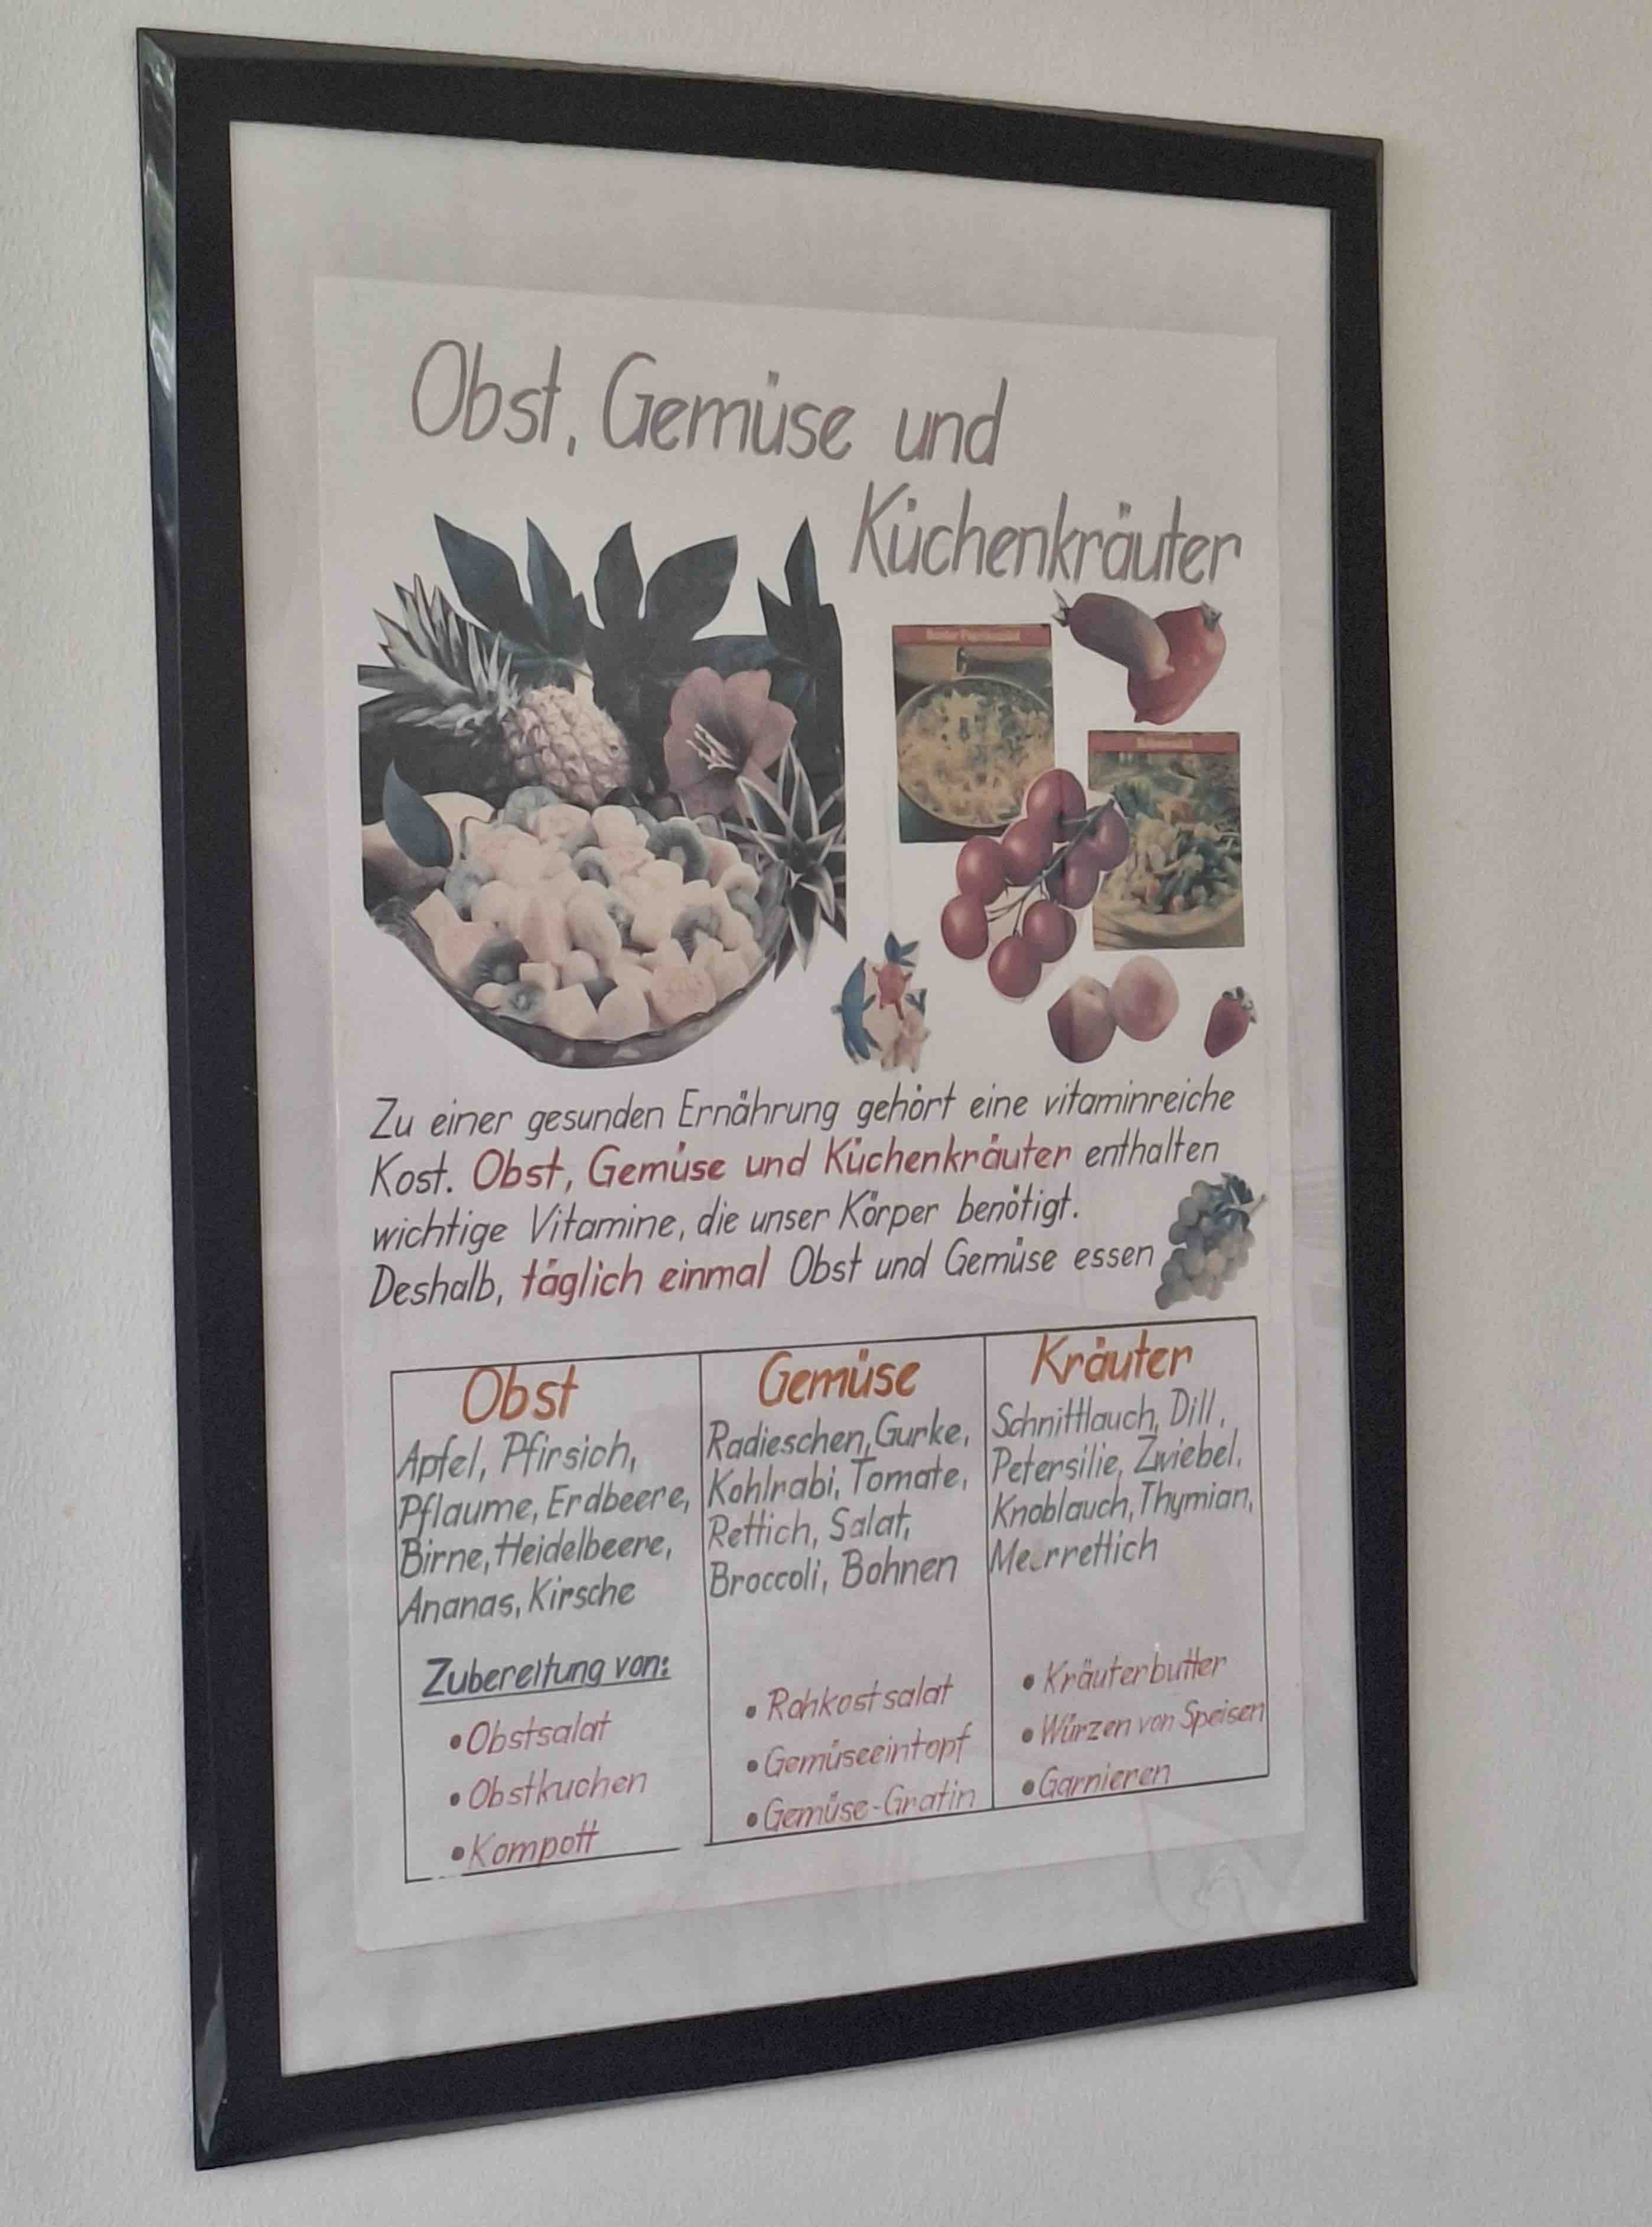 Obst, Gemüse und
Küchenkräuter
Zu einer gesunden Ernährung gehört eine vitaminreiche
Kost. Obst, Gemüse und Küchenkräuter enthalten
wichtige Vitamine, die unser Körper benötigt.
Deshalb, täglich einmal Obst und Gemüse essen
Obst
Apfel, Pfirsich,
Pflaume, Erdbeere,
Birne, Heidelbeere,
Ananas, Kirsche
Zubereitung von:
• Obstsalat
• Obstkuchen
• Kompott
Gemüse
Radieschen, Gurke,
Kohlrabi, Tomate,
Rettich, Salat,
Broccoli, Bohnen
• Rohkostsalat
• Gemüseeintopf
• Gemüse-Gratin
Kräuter
Schnittlauch, Dill,
Petersilie, Zwiebel,
Knoblauch, Thymian,
Meerrettich
• Kräuterbutter
• Würzen von Speisen
• Garnieren